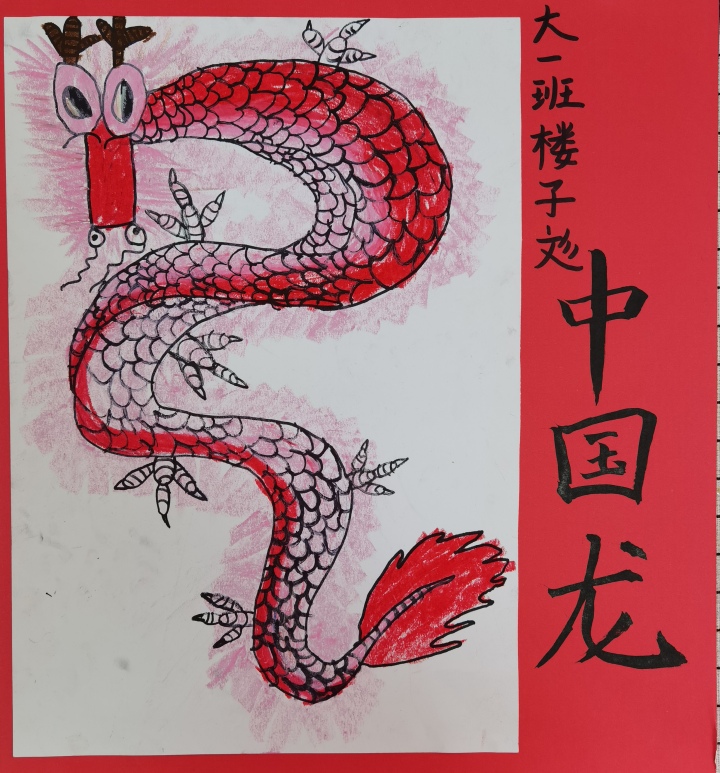 大一班楼子彧
中国龙